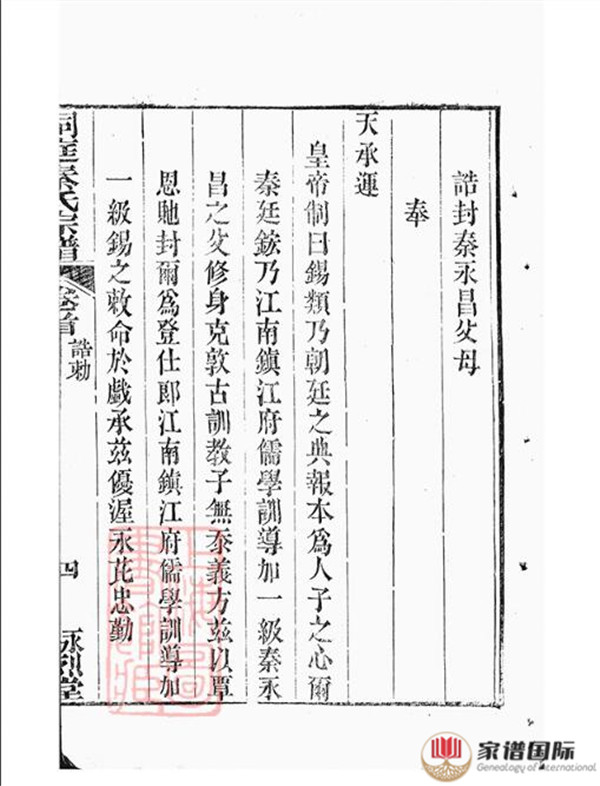 誥封秦永昌父母
奉
天承運
皇帝制曰錫類乃朝廷之典報本為人子之心爾
秦廷鋐乃江南鎮江府儒學訓導加一級秦永
昌之父修身克敦古訓教子無忝義方茲以覃
恩馳封爾為登仕郎江南鎮江府儒學訓導加
一級錫之敕命於戲承茲優渥永芘忠勤
洞庭秦氏宗譜
卷首
誥勅
四
詠烈堂
家谱国际
Genealogy of International